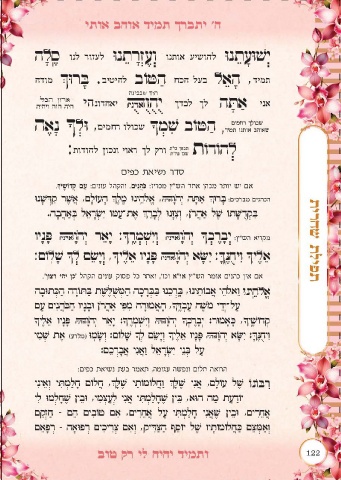 ה' יתברך תמיד אוהב אותי
יְשׁוּעָתֵנוּ להושיע אותנו וְעֶזְרָתֵנוּ לעזור לנו סֶלָה
תמיד, הָאֵל בעל הכח הַטּוֹב להיטיב. בָּרוּךְ מודה
אני אַתָּה לך לבדך
הַטּוֹב שִׁמְךָ שכולו רחמים, וּלְךָ נָאֶה
לְהוֹדוֹת ורק לך ראוי ונכון להודות:
סדר נשיאת כפים
אם יש יותר מכהן אחד הש"ץ מכריז: כֹּהֲנִים. והקהל עונים: עַם קְדוֹשֶׁיךָ.
הכהנים מברכים: בָּרוּךְ אַתָּה יְהֹוָה, אֱלֹהֵינוּ מֶלֶךְ הָעוֹלָם, אֲשֶׁר קִדְּשָׁנוּ
בִּקְדֻשָּׁתוֹ שֶׁל אַהֲרֹן, וְצִוָּנוּ לְבָרֵךְ אֶת עַמּוֹ יִשְׂרָאֵל בְּאַהֲבָה.
מקריא הש"ץ: יְבָרֶכְךָ יְהֹוָה וְיִשְׁמְרֶךָ: יָאֵר יְהֹוָה פָּנָיו
אֵלֶיךָ וִיחֻנֶּךָּ: יִשָּׂא יְהֹוָה פָּנָיו אֵלֶיךָ, וְיָשֵׂם לְךָ שָׁלוֹם:
אם אין כהנים אומר הש"ץ או"א וכו', ואחר כל פסוק עונים הקהל 'כן יהי רצון'.
אֱלֹהֵינוּ וֵאלֹהֵי אֲבוֹתֵינוּ, בָּרְכֵנוּ בַּבְּרָכָה הַמְשֻׁלֶּשֶׁת בַּתּוֹרָה הַכְּתוּבָה
עַל־יְדֵי מֹשֶׁה עַבְדֶּךָ, הָאֲמוּרָה מִפִּי אַהֲרֹן וּבָנָיו הַכֹּהֲנִים עַם
קְדוֹשֶׁיךָ, כָּאָמוּר: יְבָרֶכְךָ יְהֹוָה וְיִשְׁמְרֶךָ: יָאֵר יְהֹוָה פָּנָיו אֵלֶיךָ
וִיחֻנֶּךָּ: יִשָּׂא יְהֹוָה פָּנָיו אֵלֶיךָ וְיָשֵׂם לְךָ שָׁלוֹם: וְשָׂמוּ אֶת שְׁמִי
עַל בְּנֵי יִשְׂרָאֵל וַאֲנִי אֲבָרְכֵם:
הרואה חלום ונפשו עגומה, תאמר בעת נשיאת כפים:
רִבּוֹנוֹ שֶׁל עוֹלָם, אֲנִי שֶׁלְּךָ וַחֲלוֹמוֹתַי שֶׁלְּךָ, חֲלוֹם חָלַמְתִּי וְאֵינִי
יוֹדַעַת מַה הוּא, בֵּין שֶׁחָלַמְתִּי אֲנִי לְעַצְמִי, וּבֵין שֶׁחָלְמוּ לִי
אֲחֵרִים, וּבֵין שֶׁאֲנִי חָלַמְתִּי עַל אֲחֵרִים, אִם טוֹבִים הֵם - חַזְּקֵם
וְאַמְּצֵם כַּחֲלוֹמוֹתָיו שֶׁל יוֹסֵף הַצַּדִּיק, וְאִם צְרִיכִים רְפוּאָה - רְפָאֵם
ותמיד יהיה לי רק טוב
122
תפילת שחרית